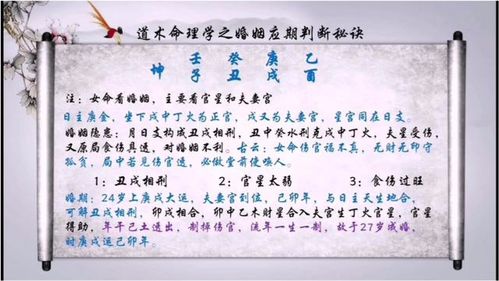 道术命理学之婚姻应期判断秘诀
壬 癸 庚 乙
坤 子 丑 戌 酉
注：女命看婚姻，主要看官星和夫妻宫
日主庚金，坐下戌中丁火为正官，戌又为夫妻宫，星宫同在日支。
婚姻隐患：月日支构成丑戌相刑，丑中癸水刑克戌中丁火，夫星受伤，
又原局食伤具透，对婚姻不利。古云：女命伤官福不真，无财无印守
孤贫，局中若见伤官透，必做堂前使唤人。
1：丑戌相刑 2：官星太弱 3：食伤过旺
婚期：24岁上庚戌大运，夫妻宫到位，己卯年，与日主天生地合，
可解丑戌相刑，卯戌相合，卯中乙木财星合入夫宫生丁火官星，官星
得助，年干己土透出，制掉伤官，流年一生一制，故于27岁成婚，
时庚戌运己卯年。